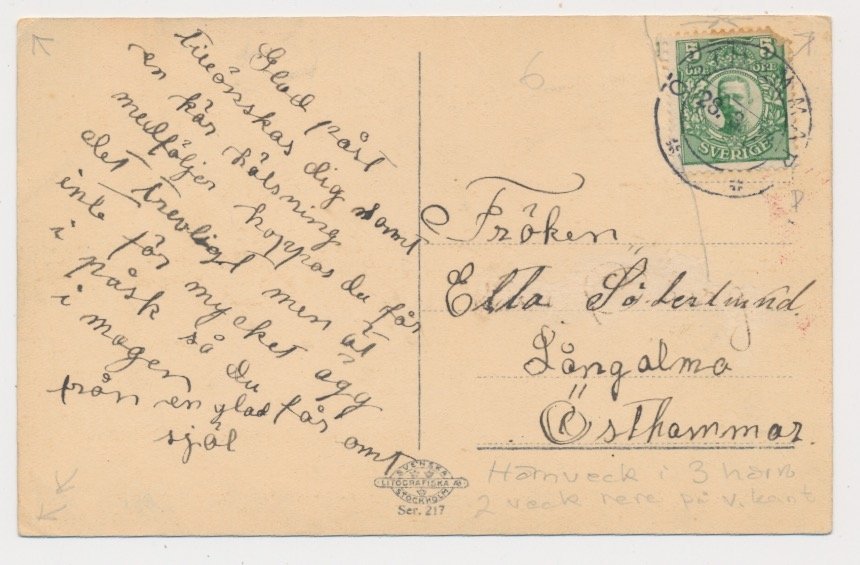 Glad påsk
tillönskas dig samt
en kär hälsning
medföljer hoppas du får
det trevligt men ät
inte för mycket ägg
i påsk så Du får omt
i magen
från en glad
själ
6
5 5
ÖRE
SVERIGE
28.
Fröken
Ella Söderlund
Långalma
Östhammar.
SVENSKA
LITOGRAFISKA AB
STOCKHOLM
Ser. 217
Hörnveck i 3 hörn
2 veck nere på v. kant